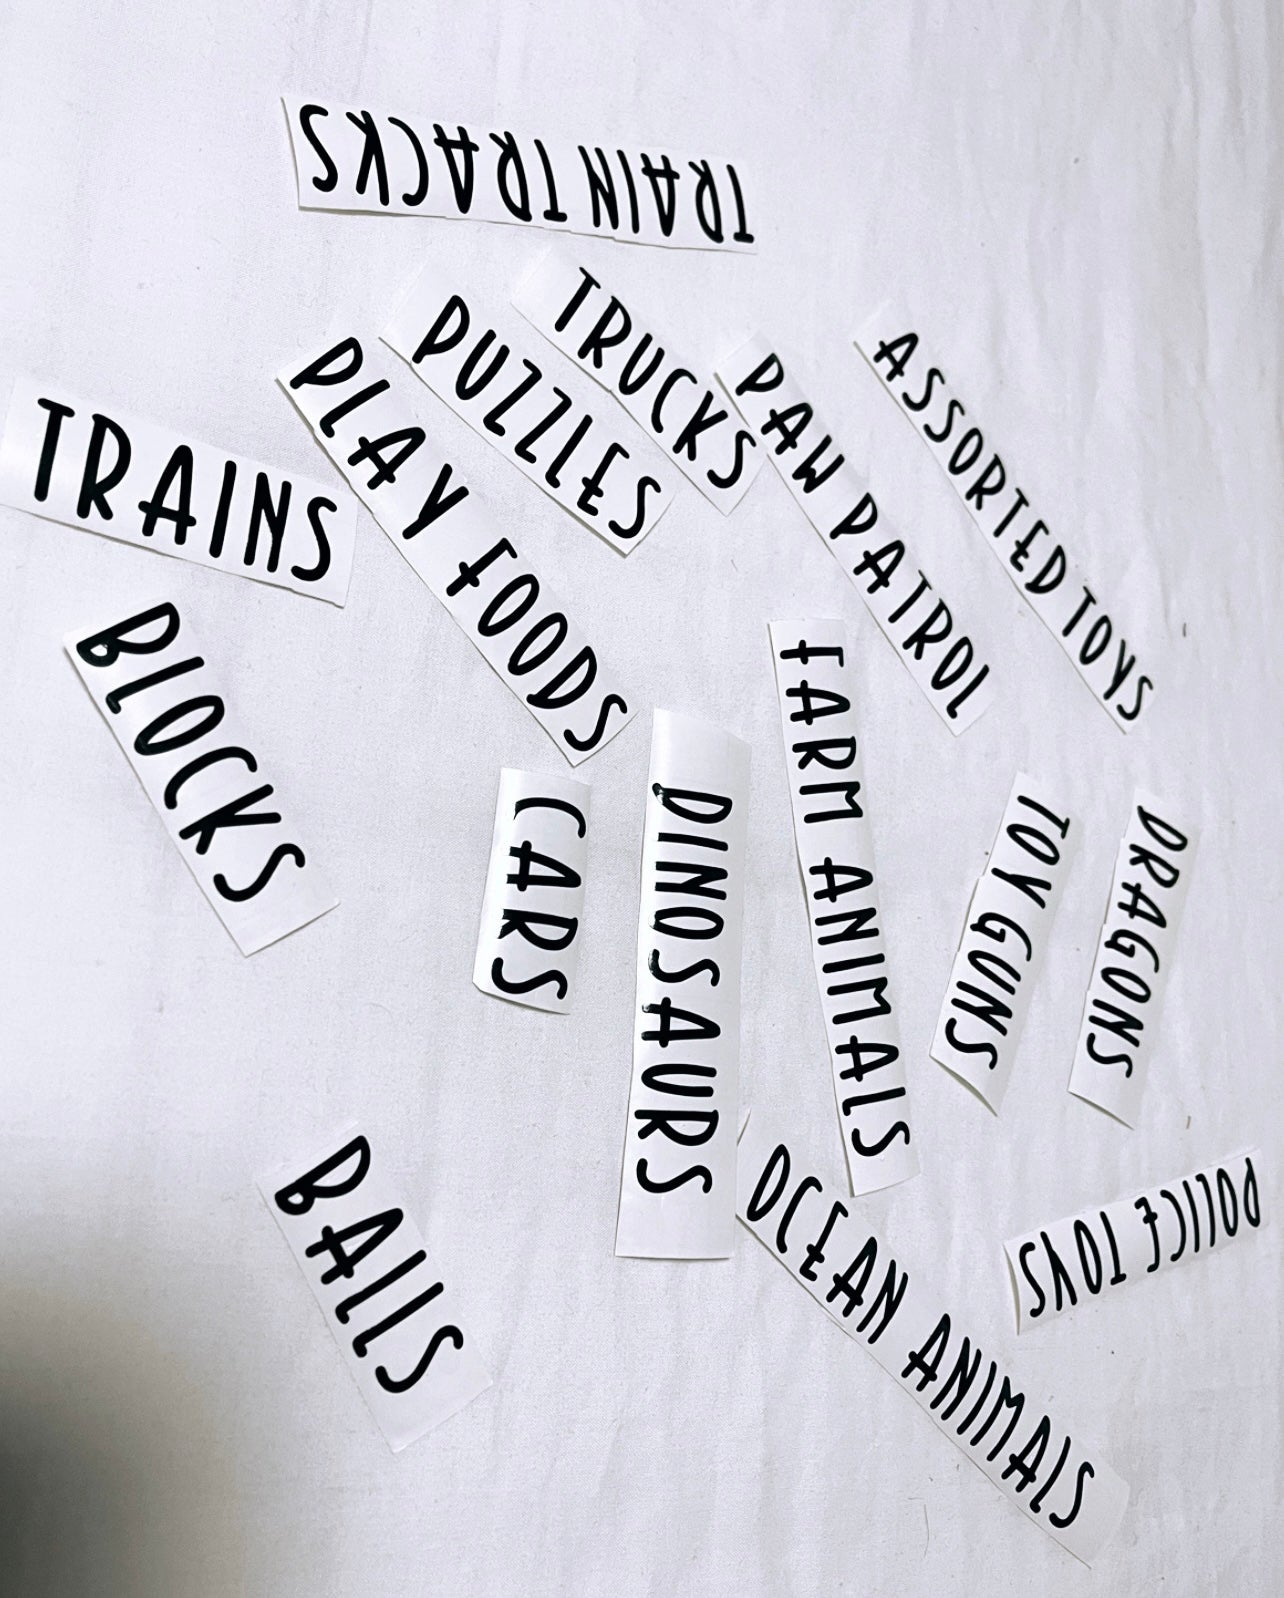 TRAIN TRACKS
TRUCKS
PUZZLES
PAW PATROL
ASSORTED TOYS
PLAY FOODS
TRAINS
BLOCKS
FARM ANIMALS
CARS
DINOSAURS
TOY GUNS
DRAGONS
BALLS
OCEAN ANIMALS
POLICE TOYS